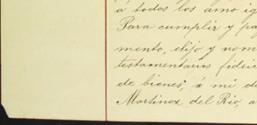 á todos los amo ig
Para cumplir y pag
mento, elijo y nom
testamentarios fidei
de bienes, á mi
Martinez del Rio, a